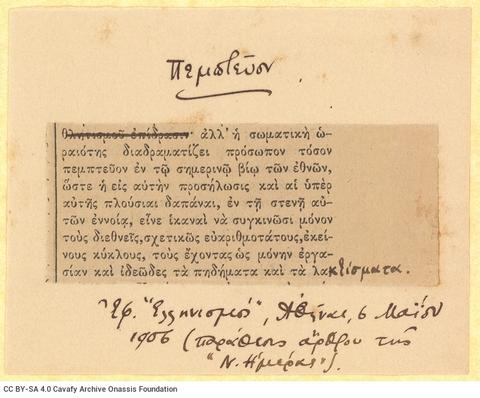 Πεμπτεῦον
θλητισμοῦ ἐπίδρασιν· ἀλλ' ἡ σωματικὴ ὡ-
ραιότης διαδραματίζει πρόσωπον τόσον
πεμπτεῦον ἐν τῷ σημερινῷ βίῳ τῶν ἐθνῶν,
ὥστε ἡ εἰς αὐτὴν προσήλωσις καὶ αἱ ὑπὲρ
αὐτῆς πλούσιαι δαπάναι, ἐν τῇ στενῇ αὐ-
τῶν ἐννοίᾳ, εἶνε ἱκαναὶ νὰ συγκινῶσι μόνον
τοὺς διεθνεῖς, σχετικῶς εὐαριθμοτάτους, ἐκεί-
νους κύκλους, τοὺς ἔχοντας ὡς μόνην ἐργα-
σίαν καὶ ἰδεῶδες τὰ πηδήματα καὶ τὰ λακτίσματα.
Ἐφ. "Ἑλληνισμός", Ἀθῆναι, 6 Μαΐου
1906 (παράθεσις ἄρθρου τῆς
"Ν. Ἡμέρας").
CC BY-SA 4.0 Cavafy Archive Onassis Foundation